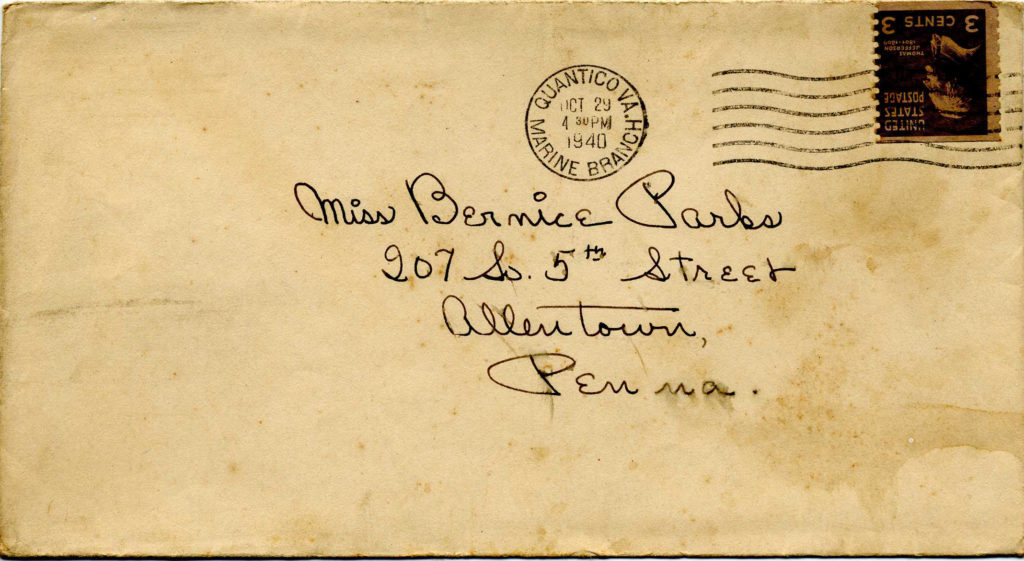 QUANTICO VA.
OCT 29
4 30 PM
1940
MARINE BRANCH
3 CENTS 3
THOMAS
JEFFERSON
1801-1809
UNITED
STATES
POSTAGE
Miss Bernice Parks
207 So. 5th Street
Allentown,
Penna.